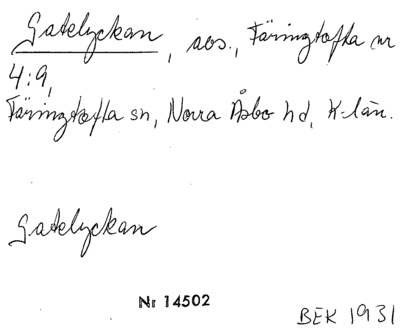 Gatelyckan, aos., Färingtofta nr
4:9,
Färingtofta sn, Norra Åsbo hd, K-län.
Gatelyckan
Nr 14502
BEK 1931